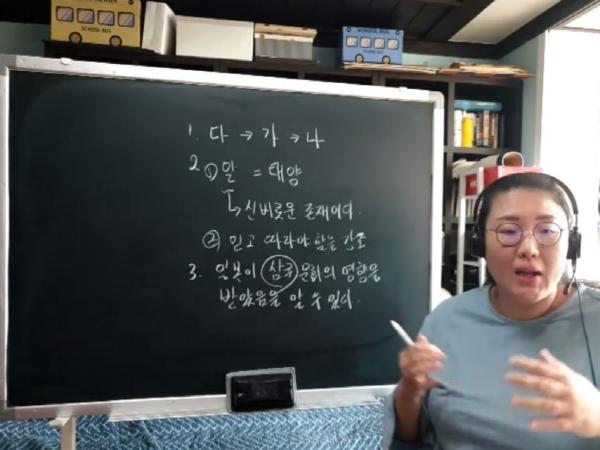 SCHOOL BUS
SCHOOL BUS
1. 다 → 가 → 나
2. ① 알 = 태양
↳ 신비로운 존재이다.
② 믿고 따라야 함을 강조
3. 일본이 삼국 문화의 영향을
받았음을 알 수 있다.